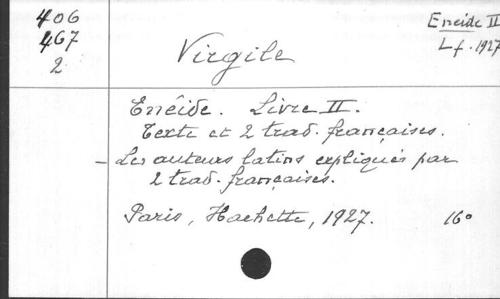 406
467
2
Enéide II
Lf. 1927
Virgile
Enéide. Livre II.
Texte et 2 trad. françaises.
- Les auteurs latins expliqués par
2 trad. françaises.
Paris, Hachette, 1927. 16°